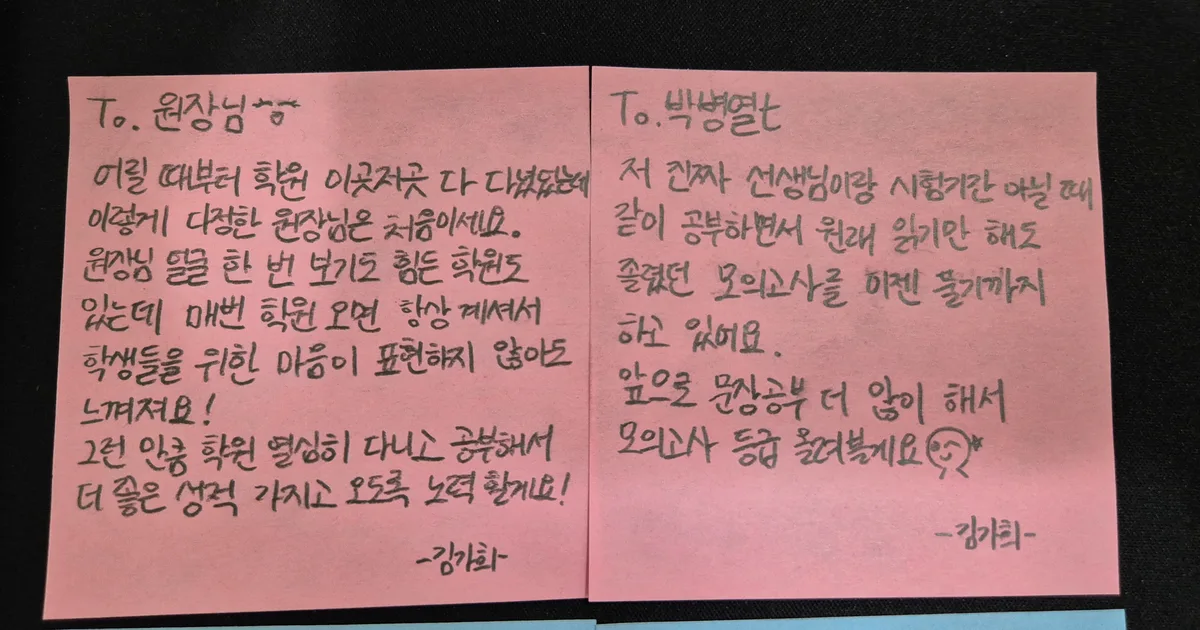 To. 원장님
어릴 때부터 학원 이곳저곳 다 다녔었는데
이렇게 다정한 원장님은 처음이세요.
원장님 얼굴 한 번 보기도 힘든 학원도
있는데 매번 학원 오면 항상 계셔서
학생들을 위한 마음이 표현하지 않아도
느껴져요!
그런 만큼 학원 열심히 다니고 공부해서
더 좋은 성적 가지고 오도록 노력 할게요!
-김가희-
To. 박병열t
저 진짜 선생님이랑 시험기간 아닐 때
같이 공부하면서 원래 읽기만 해도
졸렸던 모의고사를 이젠 풀기까지
하고 있어요.
앞으로 문장공부 더 많이 해서
모의고사 등급 올려볼게요
-김가희-